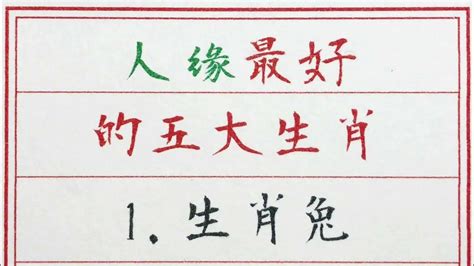 人缘最好
的五大生肖
1.生肖兔